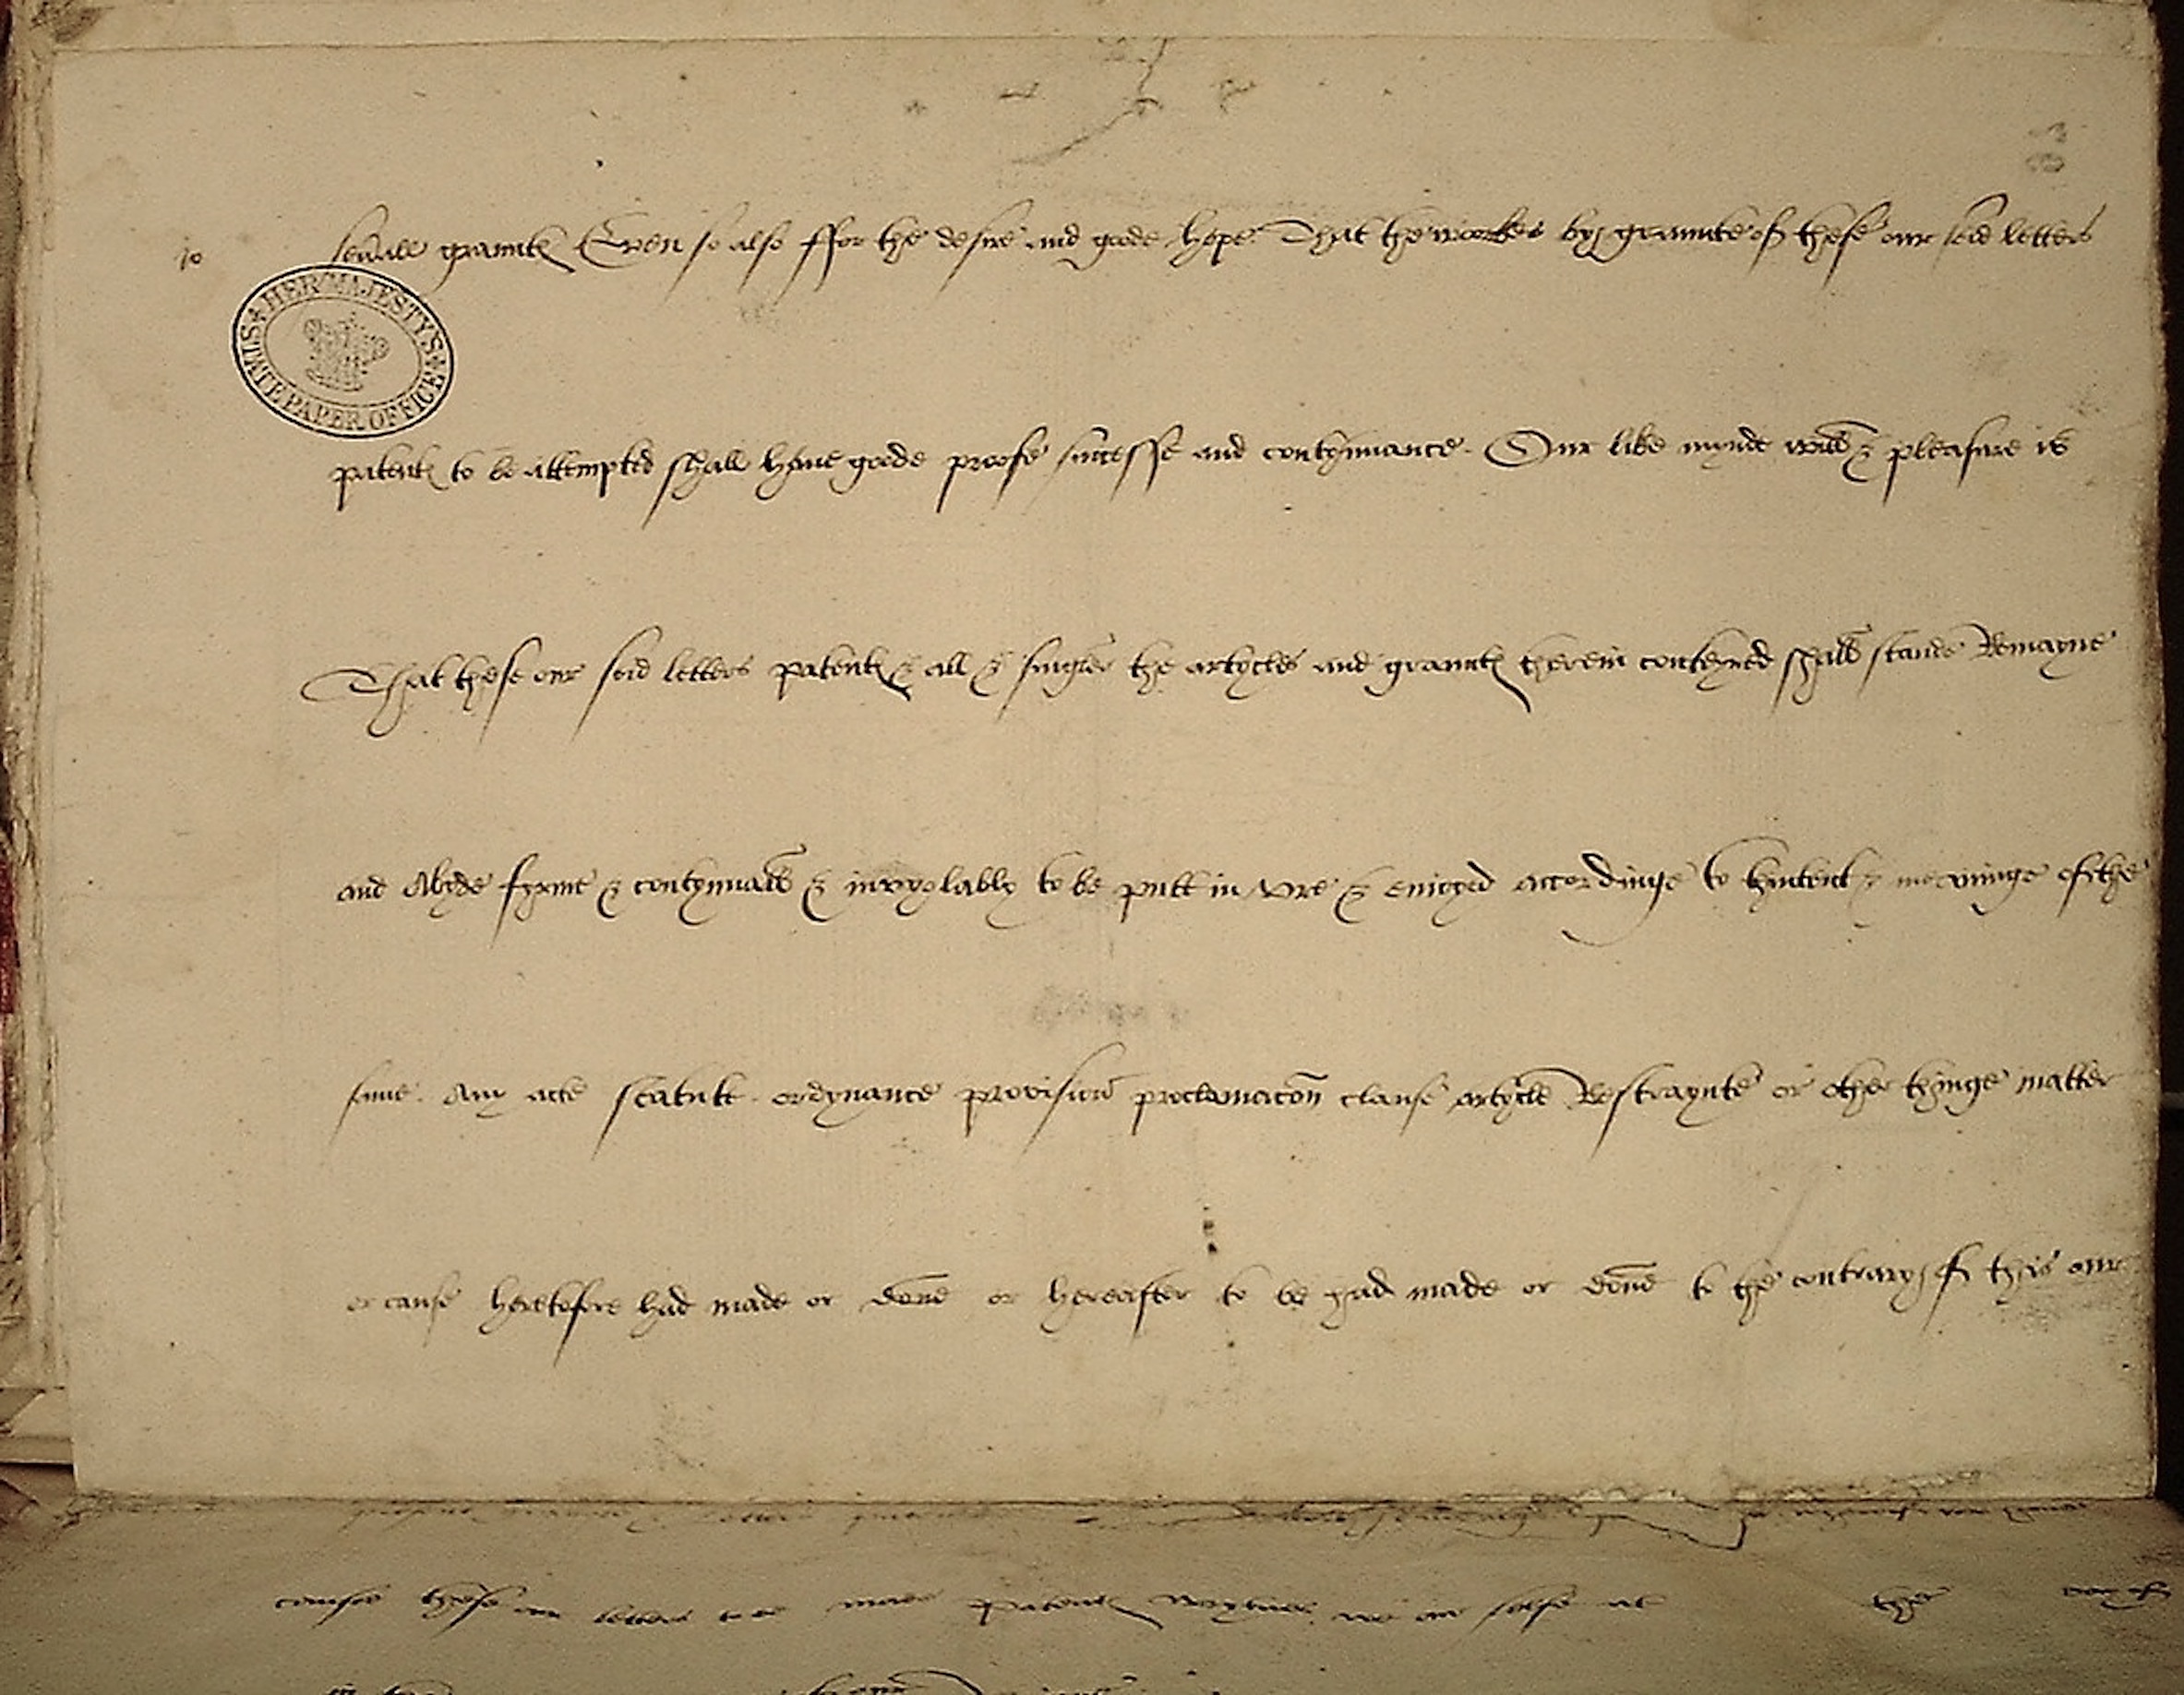 10
seũall graunt(es) Even so also ffor the desire and goode hope That the workes by graunte of these our seid letters
HER MAJESTY'S STATE PAPER OFFICE
patent(es) to be attempted shall have goode proofe successe and contynuance. Our like mynde will & pleasure is
That these our seid letters patent(es) & all & singler the artycles and graunt(es) therein conteyned shall stande Remayne
and Abyde fyrme & contynuall & invyolably to be putt in vre & enioyed accordinge to thintent & meaninge of the
same. Any acte statute. ordynance provision proclamacõn clause artycle Restraynte or other thinge matter
or cause heretofore had made or done or hereafter to be had made or done to the contrary of this our
letters
cause these our letters to be made patent(es) wytnes we our selfe at the day of